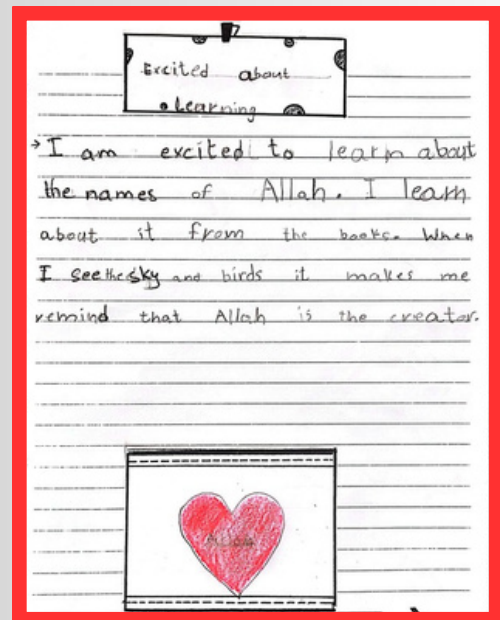 Excited about
• Learning
→ I am excited to learn about
the names of Allah. I learn
about it from the books. When
I see the sky and birds it makes me
remind that Allah is the creator.
Allah